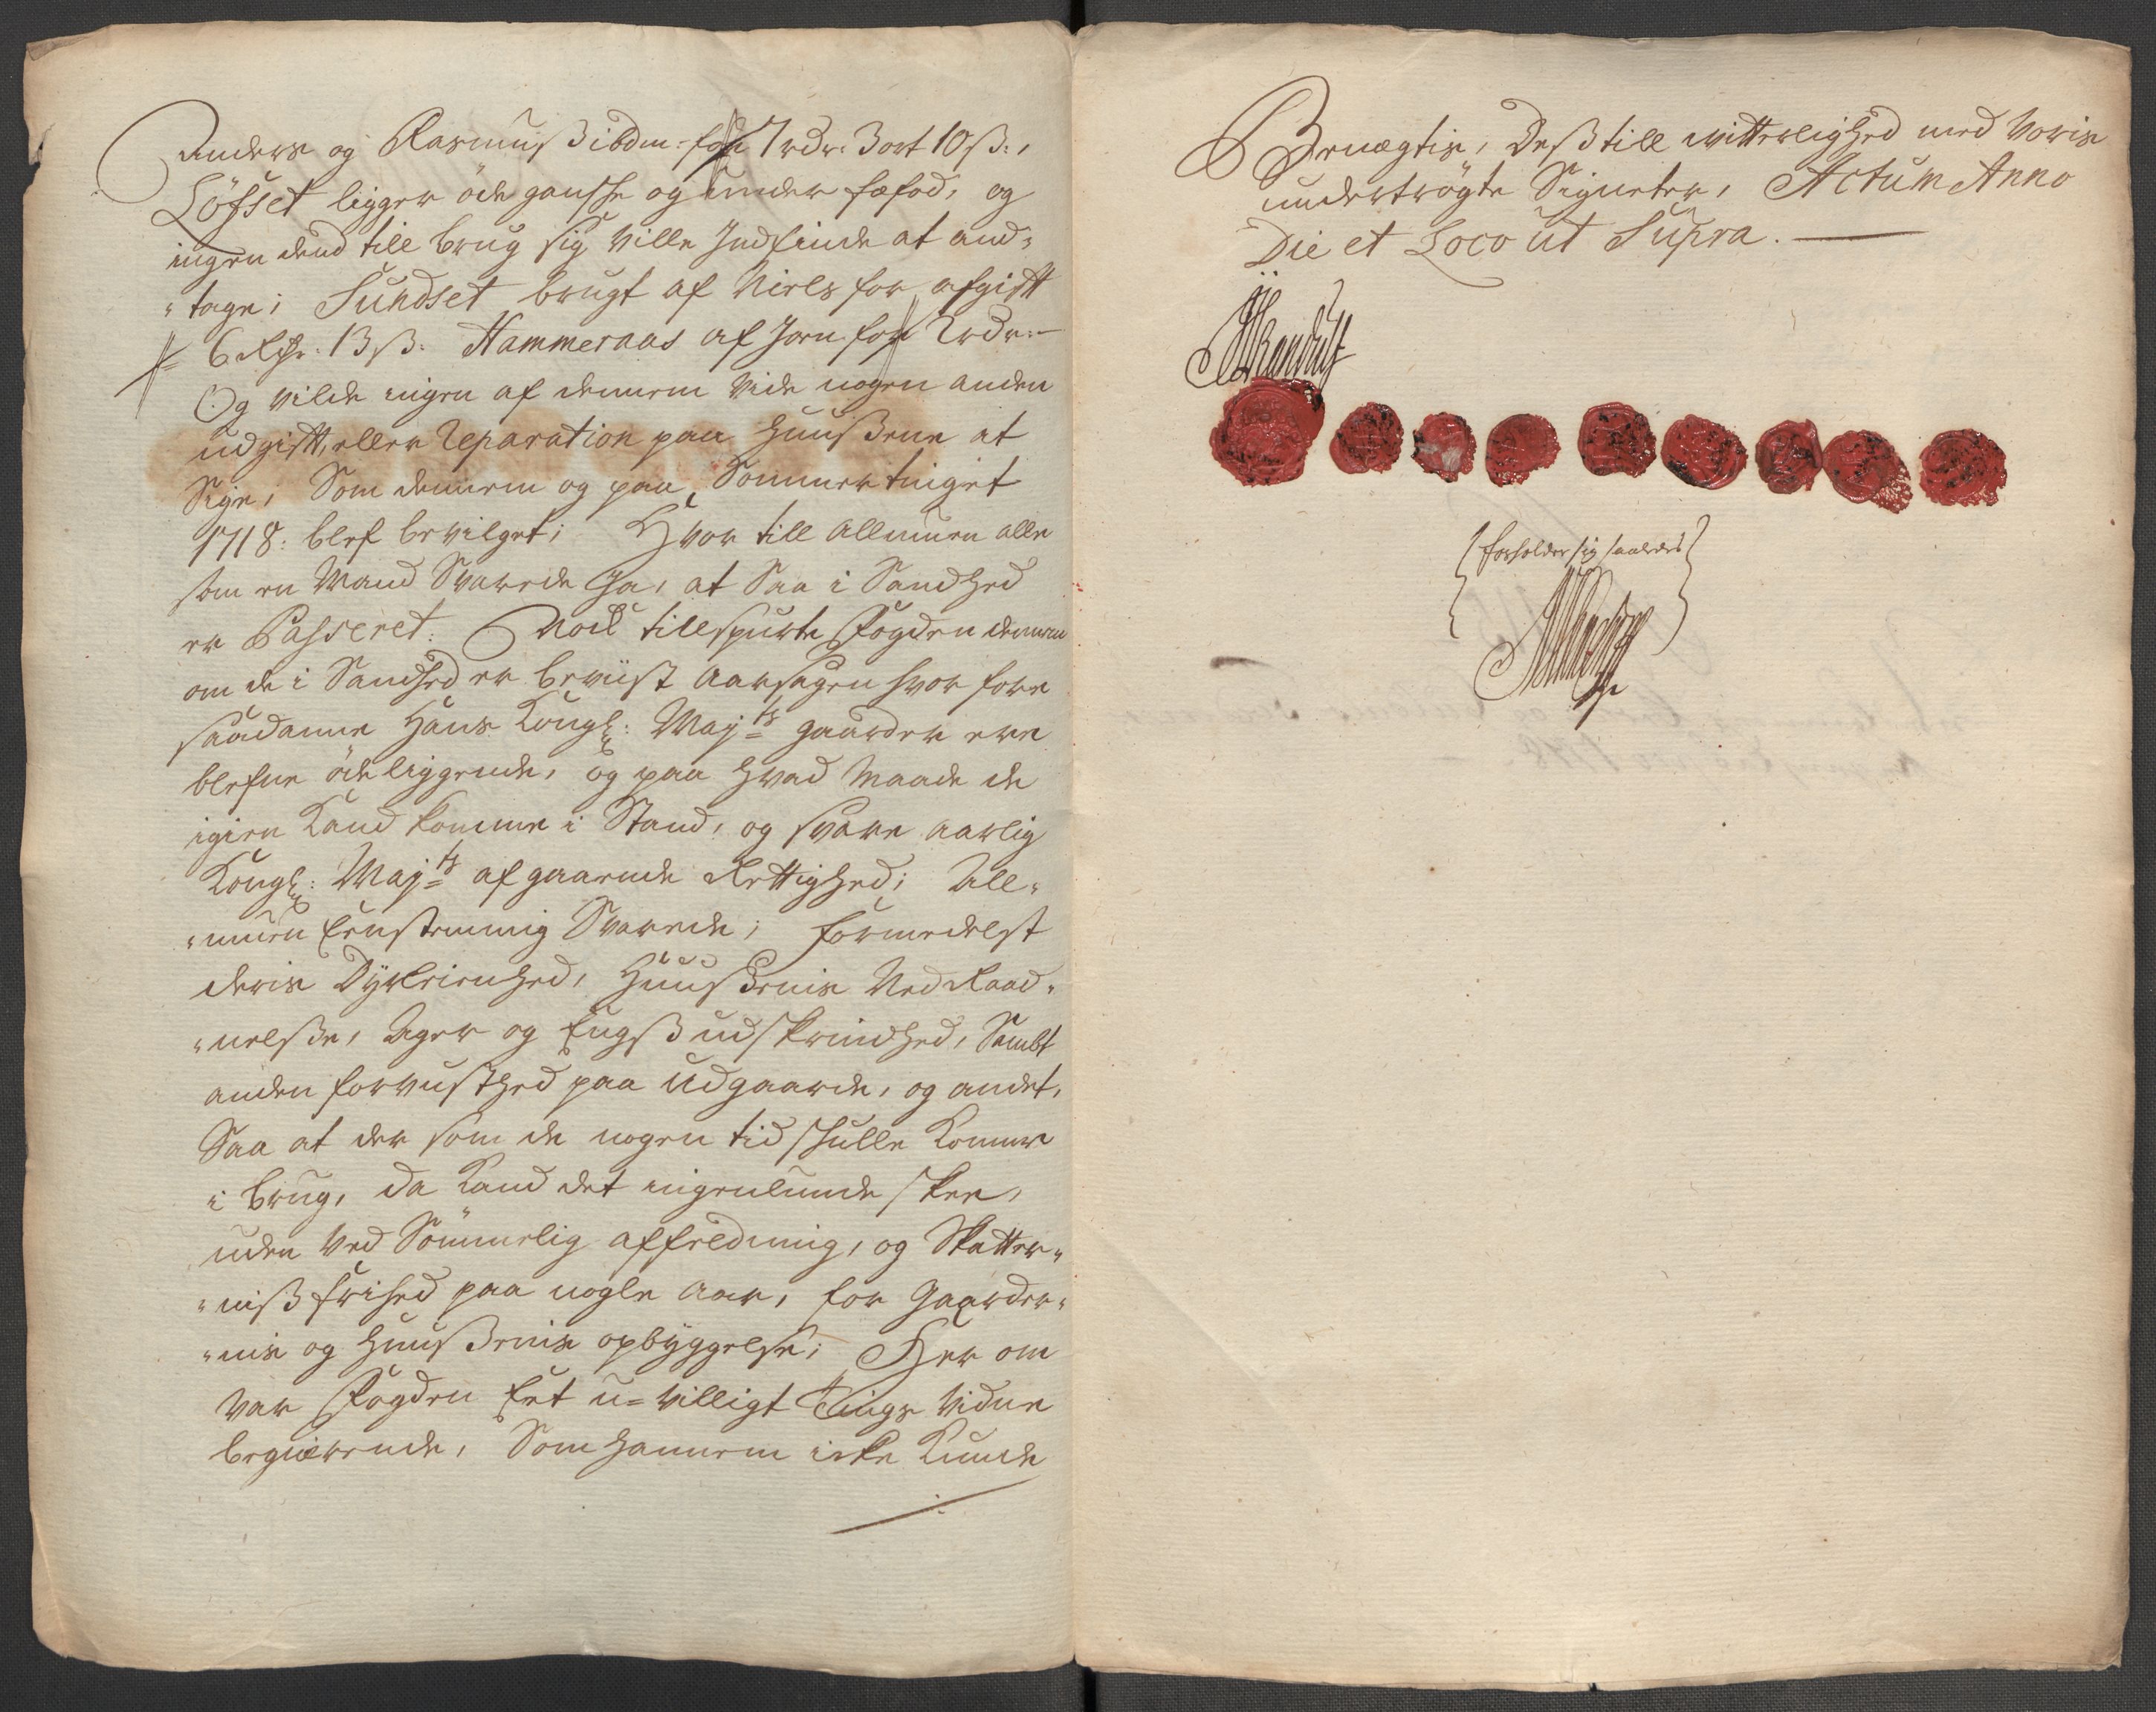 Anders og Rasmuß ibdm. for 7 rdr: 3 ort 10 ß:,
Löfset ligger öde gansche og under fæfod, og
ingen dend till brug sig ville Indfinde at and-
"tage; Sundset brugt af Niels for afgift
6 Rdr: 13 ß: Hammeraas af Jorn for 2 rdr:-
Og vilde ingen af dennem vide nogen anden
udgift, eller Reparation paa Huußene at
Sige; Som dennem og paa Sommertinget
1718: blef bevilget; Hvor till Allmuen alle
som en Mand Svarede Ja, at Saa i Sandhed
er Passeret: Nock tillspurte Fogden dennem
om de i Sandhed er beviist Aarsagen hvor fore
saadanne Hans Kongl: Mayts gaarder ere
blefne öde liggende, og paa hvad Maade de
igien Kand komme i Stand, og svare aarlig
Kongl: Mayts afgaaende Rettighed; All-
"muen Eenstemmig Svarede; formedelst
deris Dyrleienhed, Huußenis Ved Raad-
"nelße, Ager og Engß udskrindhed, Sambt
anden forvusthed paa Udgaarde, og andet,
Saa at der som de nogen tid skulle Komme
i brug, da Kand det ingenlunde skee,
uden Ved Sömmelig affredning, og Skatter-
"niß frihed paa nogle Aar, for Gaarder-
"nis og Huußenis opbyggelse; Her om
var Fogden Eet u-villigt Tings Vidne
begierende, Som hannem icke Kunde
Benægtis, Deß till witterlighed med Voris
undertrögte Signeter, Actum Anno
Die et Loco ut Supra.
forholder sig saaledes